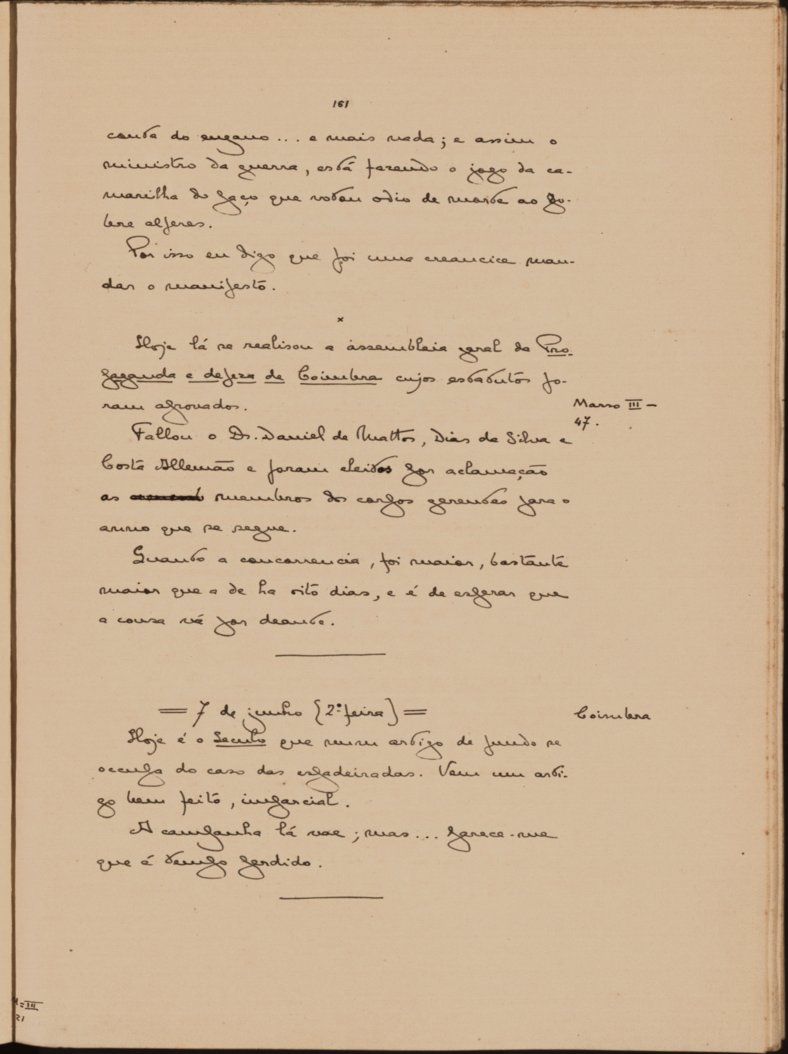 161
conta do engano... e mais nada; e assim o
ministro da guerra, está fazendo o jogo da ca-
marilha do Paço que votou odio de morte ao po-
bre alferes.
Por isso eu digo que foi uma creancice man-
dar o manifesto.
x
Hoje lá se realisou a assembleia geral da Pro-
paganda e defeza de Coimbra cujos estatutos fo-
ram aprovados.
Masso III –
47.
Fallou o Dr. Daniel de Mattos, Dias da Silva e
Costa Allemão e foram eleitos por aclamação
os membros dos corpos gerentes para o
anno que se segue.
Quanto a concorrencia, foi maior, bastante
maior que a de ha oito dias, e é de esperar que
a cousa vá por deante.
= 7 de junho (2ª feira) =
Coimbra
Hoje é o Seculo que num artigo de fundo se
occupa do caso das espadeiradas. Vem um arti-
go bem feito, imparcial.
A campanha lá vae; mas... parece-me
que é tempo perdido.
M=III
21